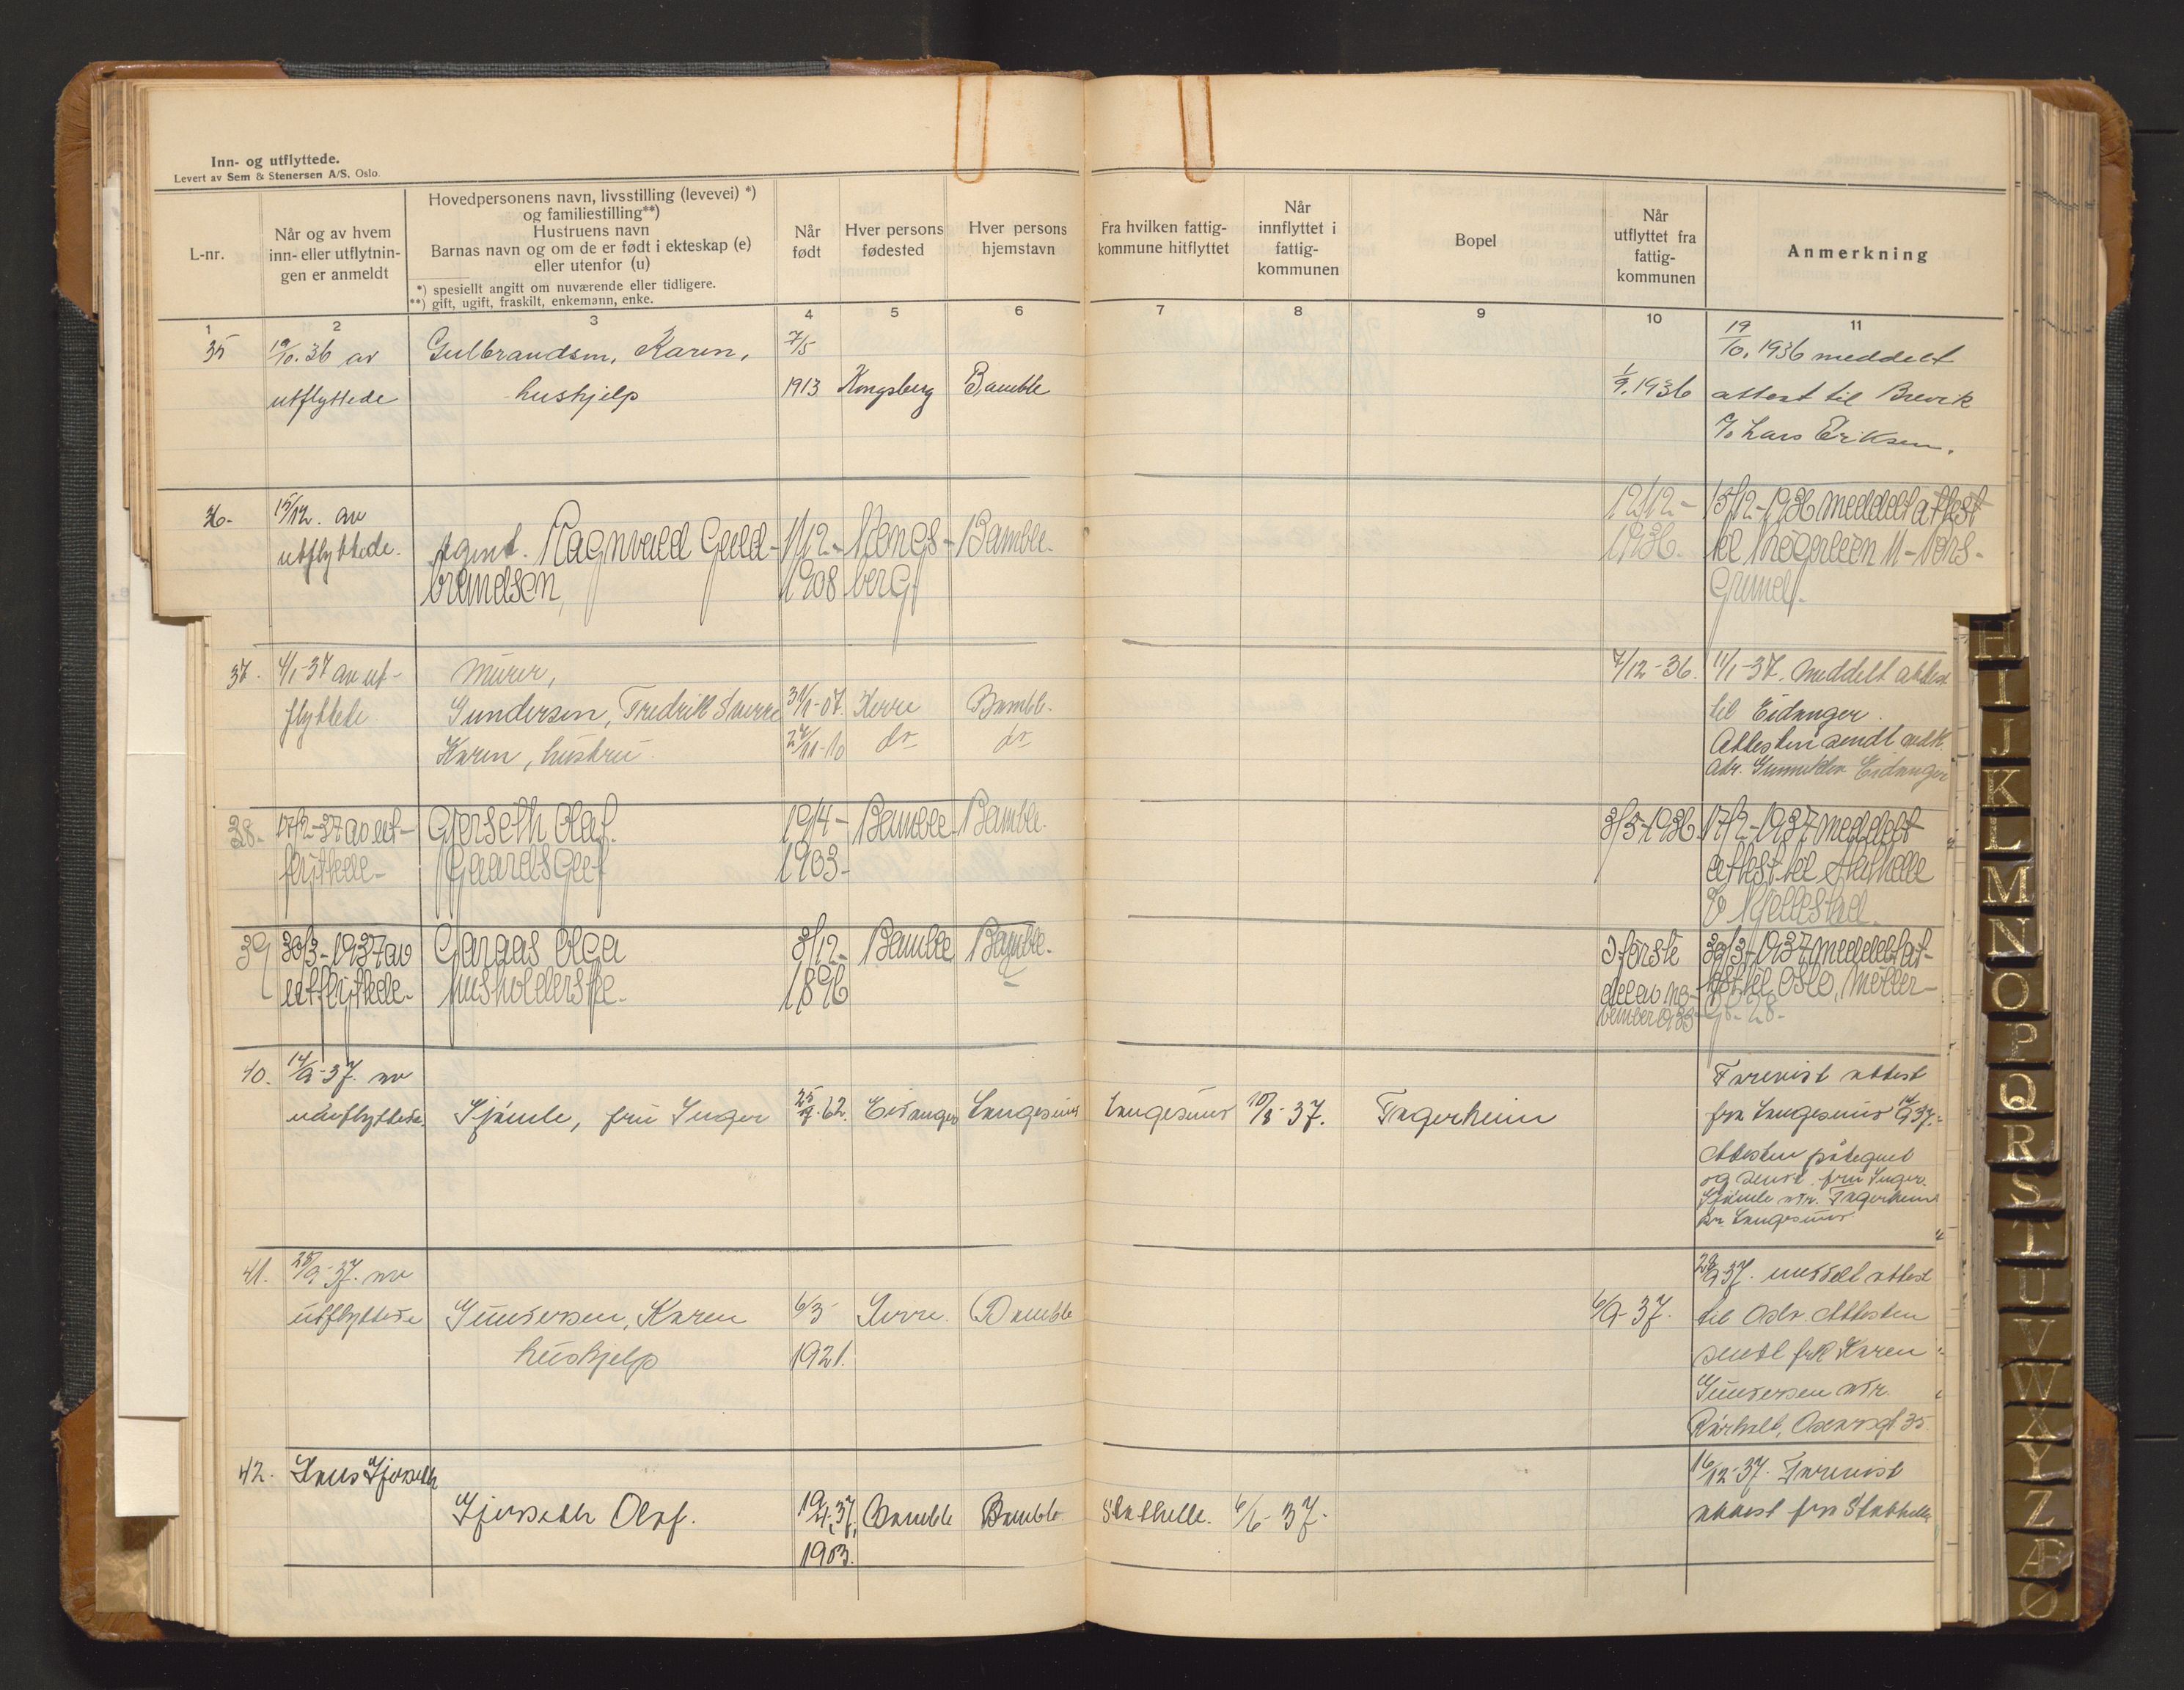 Inn- og utflyttede.
Levert av Sem & Stenersen A/S, Oslo.
L-nr.
Når og av hvem
inn- eller utflytnin-
gen er anmeldt
Hovedpersonens navn, livsstilling (levevei) *)
og familiestilling**)
Hustruens navn
Barnas navn og om de er født i ekteskap (e)
eller utenfor (u)
*) spesiellt angitt om nuværende eller tidligere.
**) gift, ugift, fraskilt, enkemann, enke.
Når
født
Hver persons
fødested
Hver persons
hjemstavn
Fra hvilken fattig-
kommune hitflyttet
Når
innflyttet i
fattig-
kommunen
Bopel
Når
utflyttet fra
fattig-
kommunen
Anmerkning
1 2 3 4 5 6 7 8 9 10 11
35 19/10.36 av Gulbrandsen, Karen, 7/5 19/10.1936 meddelt
utflyttede hushjelp 1913 Kongsberg Bamble 1/9.1936 attest til Brevik
c/o Lars Eriksen.
36- 15/12. av 12/12- 15/12-1936 meddelt attest
utflyttede. Agent. Ragnvald Guld- 1/12- Kongs- Bamble. 1936. til
brandsen, 1908 berg
37. 4/1-37 av ut- Murer, 7/12-36. 11/1-37. Meddelt attest
flyttede Gundersen, Fredrik Sverre 31/1-07. Herre Bamble. til Eidanger.
Karen, hustru 24/11-10 do do Attesten sendt
adr. Eidanger
38. 17/2-37 av ut- Gjerseth Olaf. 19/4- Bamble Bamble. 3/5-1936 17/2-1937 meddelt
flyttede- Gaardsgut 1903- attest til Stathelle
c/o Kjellestad.
39 30/3-1937 av Gjaraas Olga 3/12- Bamble Bamble. I første 30/3-1937 meddelt at-
utflyttede- husholderske. 1896 del av no- test til Oslo, Møller-
vember 1935- gt. 28-
40. 14/9-37. av Forevist attest
utflyttede. Gjømle, fru Inger 25/9.62. Eidanger Langesund Langesund 10/8-37. Fagerheim fra Langesund 14/9 37.
Attesten påtegnet
og sendt fru Inger
Gjømle adr. Fagerheim
pr. Langesund
41. 28/9-37. av 28/9 37. meddelt attest
utflyttede Gundersen, Karen 6/3- Herre. Bamble 6/9-37. til Oslo. Attesten
hushjelp 1921. sendt frk Karen
Gundersen adr.
Rørholt, Oscarsgt 35
42. Hans Gjerseth 16/12-37. Forevist
Gjerseth Olaf. 19/4.37, Bamble Bamble Stathelle. 6/6-37. attest fra Stathelle
1903.
H
I
J
K
L
M
N
O
P
Q
R
S
T
U
V
W
X
Y
Z
Æ
Ø